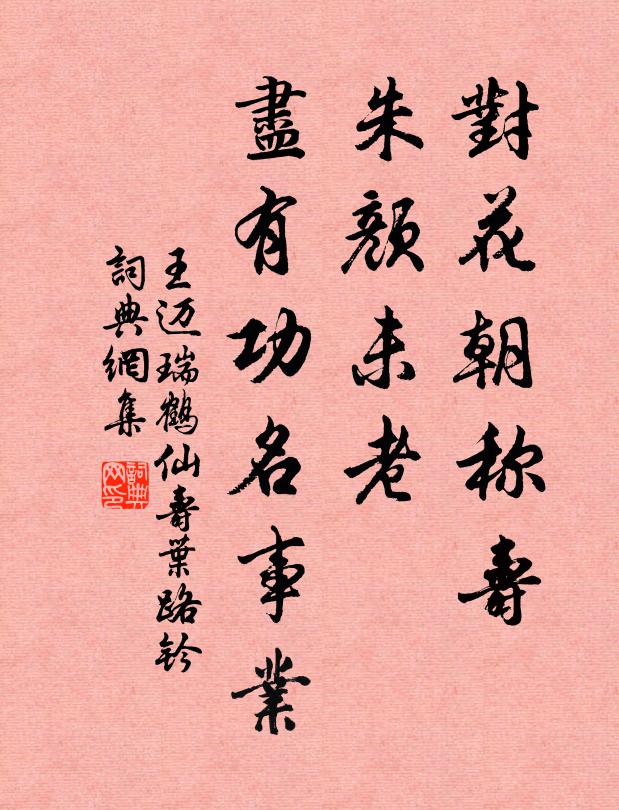 對花朝称壽
朱顏未老
盡有功名事業
王迈瑞鶴仙壽葉路鈐
詞典網集
詞典网印